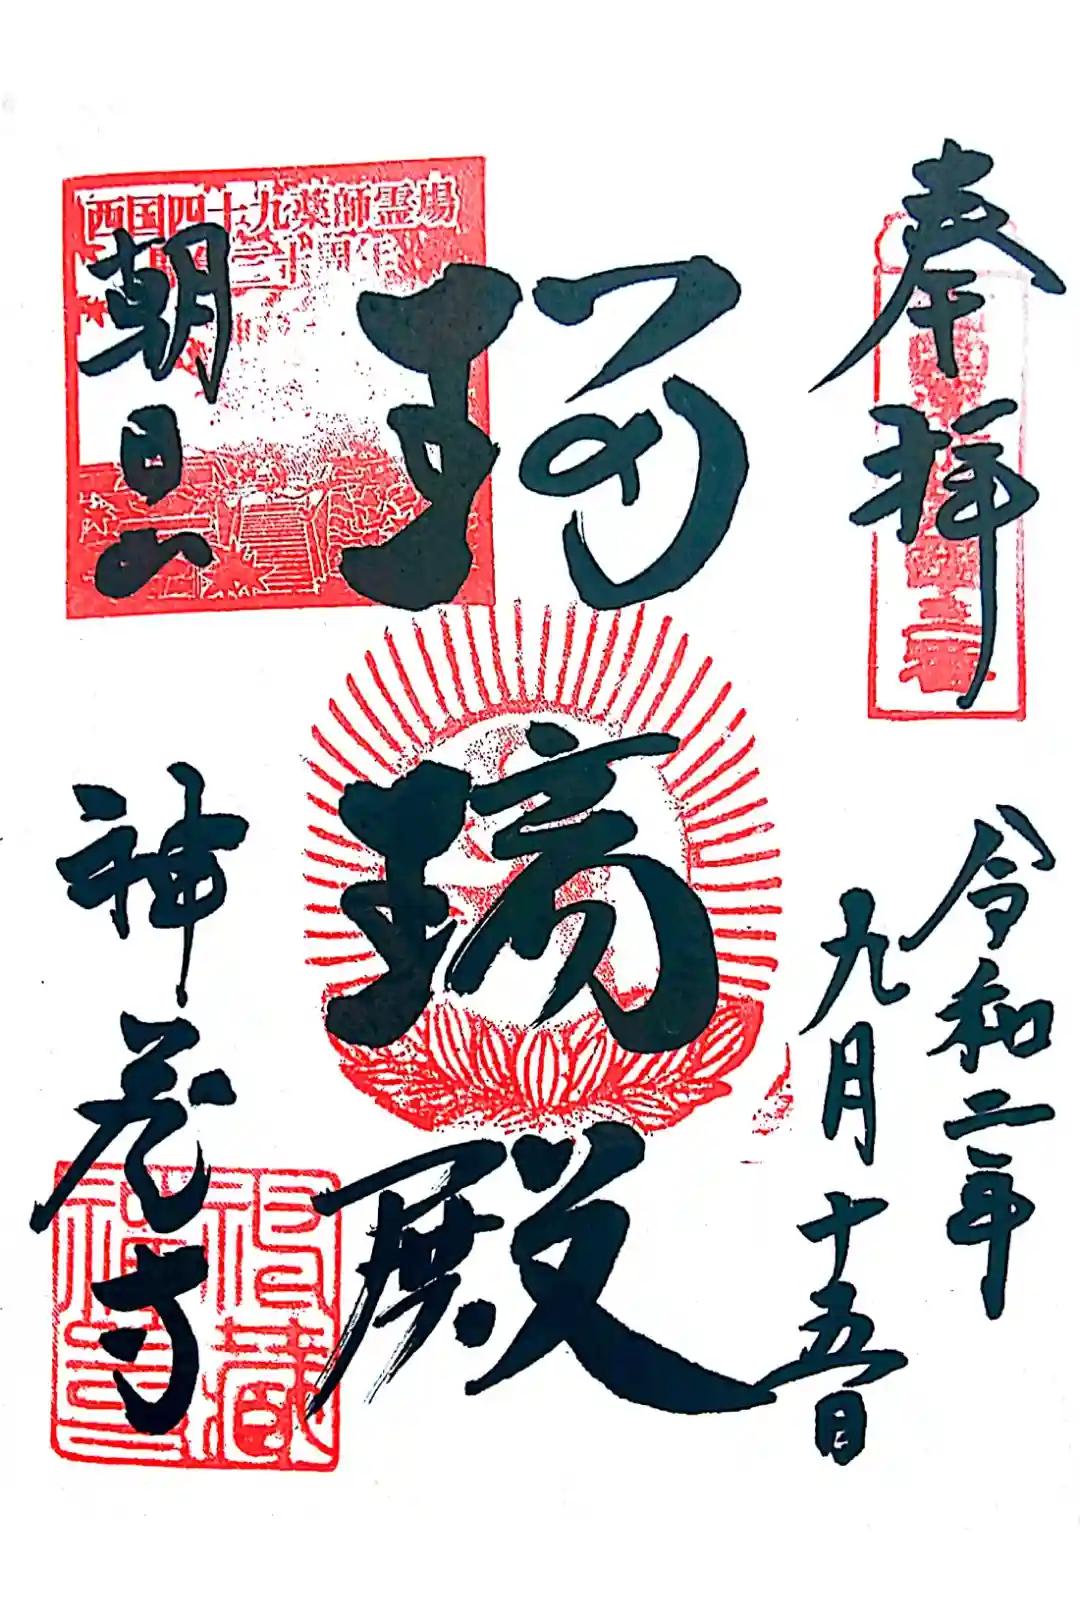 奉拝
令和二年
九月十五日
瑠璃殿
西国四十九薬師霊場
三十周年
朝日山
神蔵寺